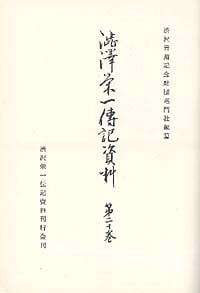 渋沢青淵記念財団竜門社編纂
澁澤榮一傳記資料
第二十巻
渋沢栄一伝記資料刊行会刊